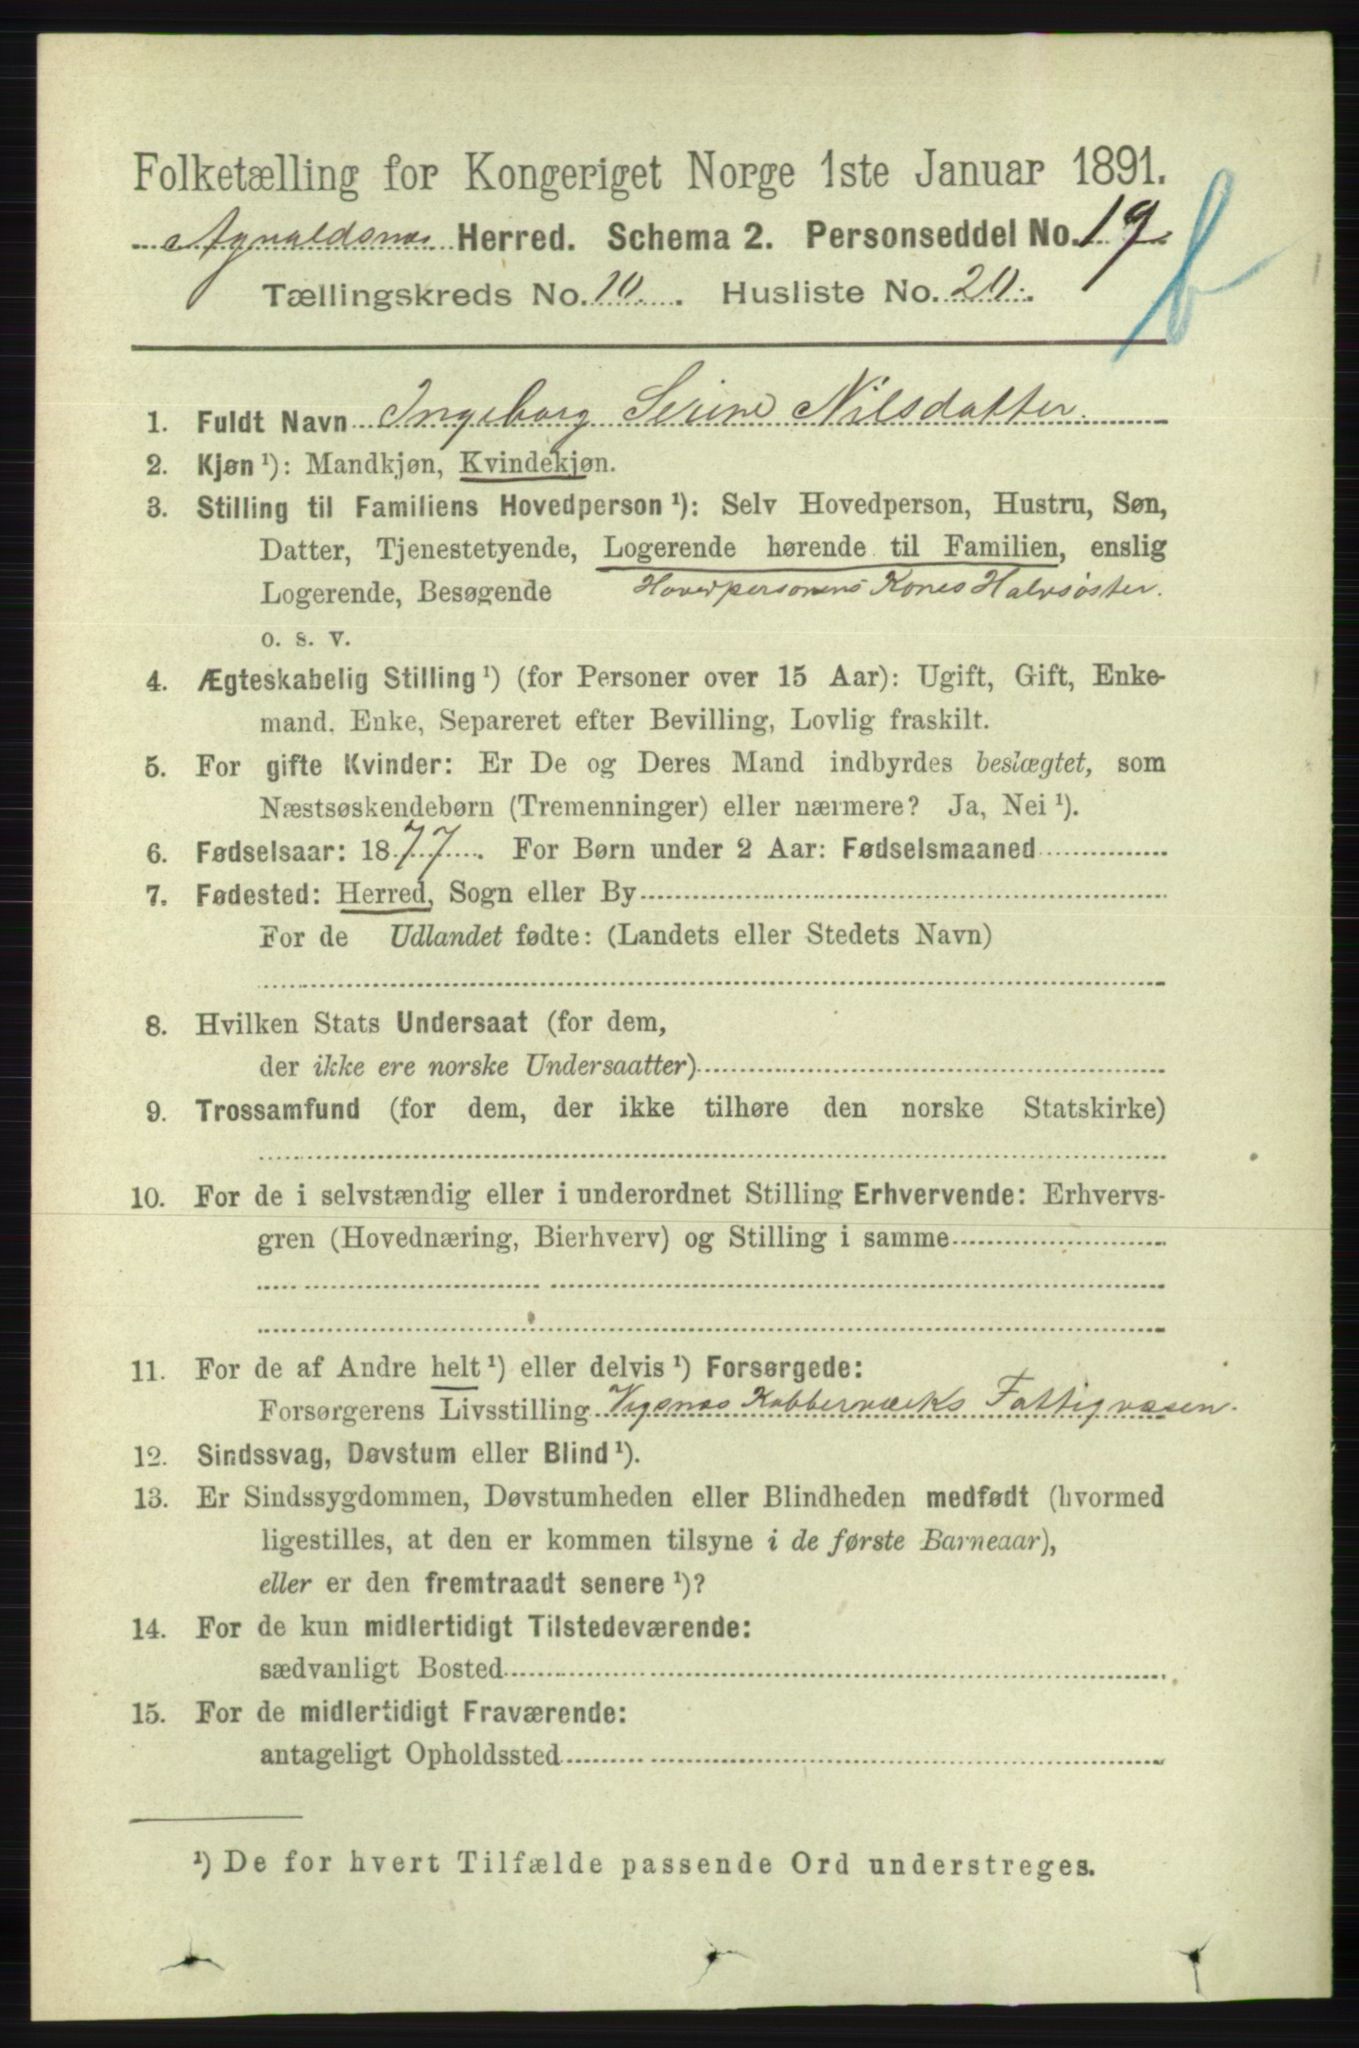 Folketælling for Kongeriget Norge 1ste Januar 1891.
Agvaldsnæs Herred. Schema 2. Personseddel No. 19.
Tællingskreds No. 10. Husliste No. 20.
b
1. Fuldt Navn Ingeborg Serine Nilsdatter.
2. Kjøn ¹): Mandkjøn, Kvindekjøn.
3. Stilling til Familiens Hovedperson ¹): Selv Hovedperson, Hustru, Søn,
Datter, Tjenestetyende, Logerende hørende til Familien, enslig
Logerende, Besøgende Hovedpersonens Kones Halvsøster.
o. s. v.
4. Ægteskabelig Stilling ¹) (for Personer over 15 Aar): Ugift, Gift, Enke-
mand, Enke, Separeret efter Bevilling, Lovlig fraskilt.
5. For gifte Kvinder: Er De og Deres Mand indbyrdes beslægtet, som
Næstsøskendebørn (Tremenninger) eller nærmere? Ja, Nei ¹).
6. Fødselsaar: 1877. For Børn under 2 Aar: Fødselsmaaned
7. Fødested: Herred, Sogn eller By
For de Udlandet fødte: (Landets eller Stedets Navn)
8. Hvilken Stats Undersaat (for dem,
der ikke ere norske Undersaatter)
9. Trossamfund (for dem, der ikke tilhøre den norske Statskirke)
10. For de i selvstændig eller i underordnet Stilling Erhvervende: Erhvervs-
gren (Hovednæring, Bierhverv) og Stilling i samme
11. For de af Andre helt ¹) eller delvis ¹) Forsørgede:
Forsørgerens Livsstilling Vigsnæs Kobberværks Fattigvæsen.
12. Sindssvag, Døvstum eller Blind ¹).
13. Er Sindssygdommen, Døvstumheden eller Blindheden medfødt (hvormed
ligestilles, at den er kommen tilsyne i de første Barneaar),
eller er den fremtraadt senere ¹)?
14. For de kun midlertidigt Tilstedeværende:
sædvanligt Bosted
15. For de midlertidigt Fraværende:
antageligt Opholdssted
¹) De for hvert Tilfælde passende Ord understreges.